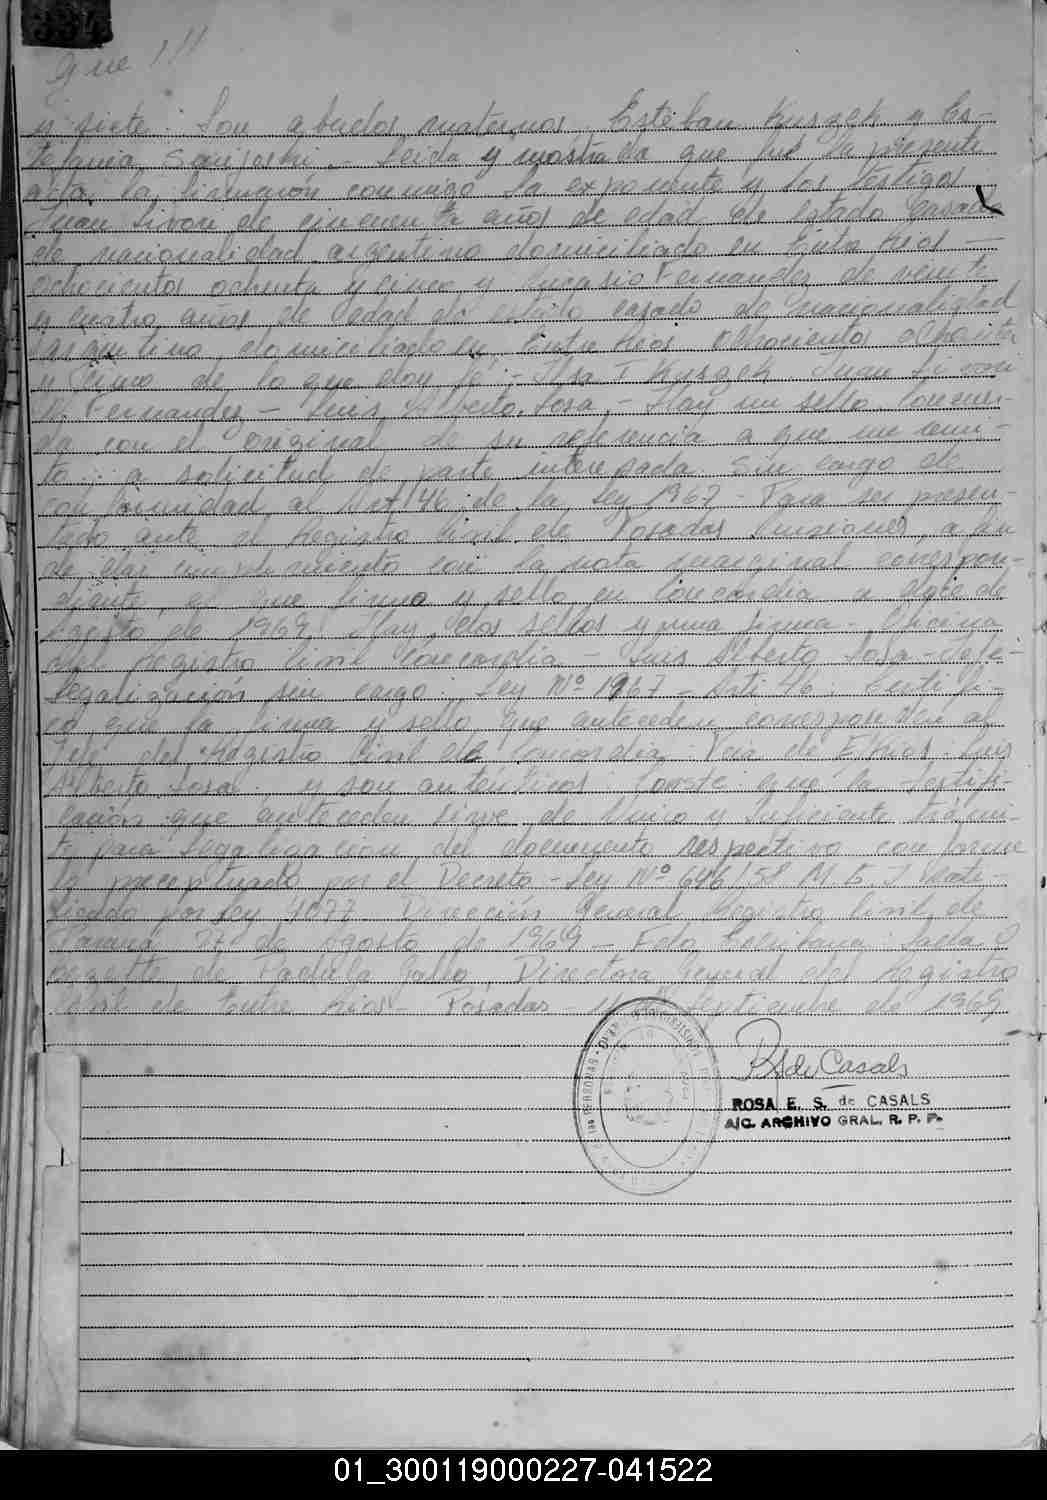 334
que !!!
y siete. Son abuelos maternos Esteban Kuszek y Es-
tefania - Leida y mostrada que fué la presente
acta la firmaron conmigo la exponente y los testigos
Juan Sivori de cincuenta años de edad de estado casado
de nacionalidad argentino domiciliado en Entre Rios —
ochocientos ochenta y cinco y Fernandez de veinte
y cuatro años de edad de estado casado de nacionalidad
argentino, domiciliado en Entre Rios ochocientos ochenta
y cinco de lo que doy fé - Ilsa T Kuszek Juan Sivori
Fernandez - Luis Alberto Sosa - Hay un sello. Concuer-
da con el original de su referencia a que me remi-
to. a solicitud de parte interesada. Sin cargo de
conformidad al Art 46 de la Ley 1967 - Para ser presen-
tado ante el Registro Civil de Posadas Misiones, a fin
de dar cumplimiento con la nota marginal correspon-
diente, en Concordia a siete de
Agosto de 1969. Hay dos sellos y una firma - Oficina
del Registro Civil Concordia - Luis Alberto Sosa - Jefe -
Legalización sin cargo: Ley Nº 1967 - Art. 46: Certifi-
co que la firma y sello que anteceden corresponden al
Jefe del Registro Civil de Concordia. Pcia de E. Rios. Luis
Alberto Sosa y son auténticos. Conste que la certifi-
cacion que anteceden sirve de Unico y Suficiente trámi-
te para legalización del documento respectivo conforme
lo preceptuado por el Decreto - Ley Nº 646/58 M. E.
por Ley 4077. Dirección General Registro Civil de
Parana de Agosto de 1969 - Fdo
de Padula Gallo, Directora General del Registro
Civil de Entre Rios - Posadas - Septiembre de 1969
RS de Casals
ROSA E. S. de CASALS
A/C. ARCHIVO GRAL. R. P. P.
01_300119000227-041522